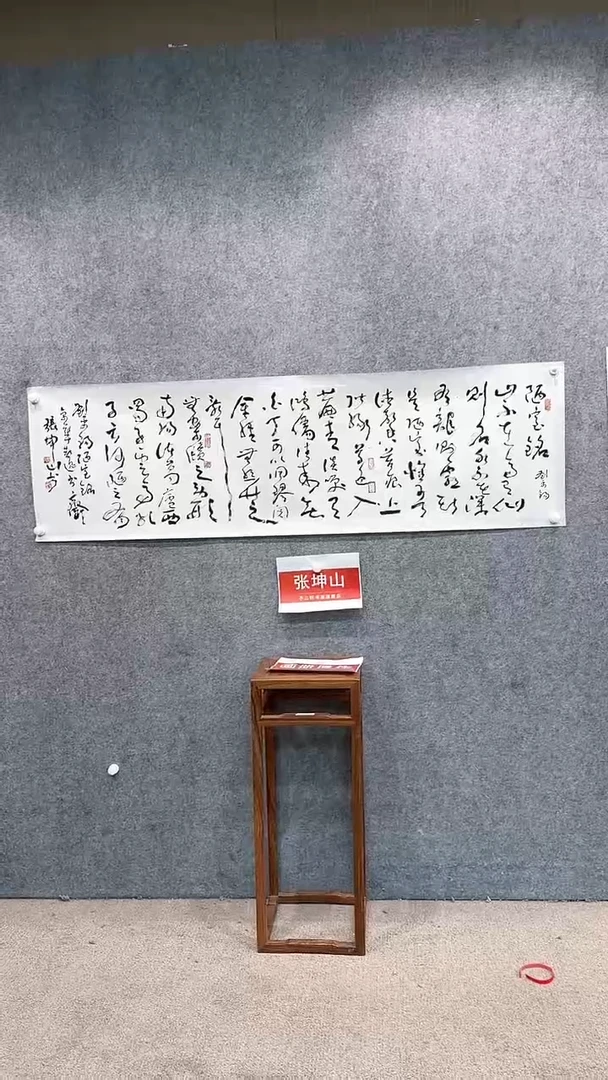 陋室铭 刘禹锡
山不在高有仙
则名水不在深
有龙则灵斯
是陋室惟吾
德馨苔痕上
阶绿草色入
帘青谈笑有
鸿儒往来无
白丁可以调琴阅
金经无丝竹之
乱耳
无案牍之劳形
南阳诸葛庐西
蜀子云亭孔
子云何陋之有
刘禹锡陋室铭
张坤山书
张坤山